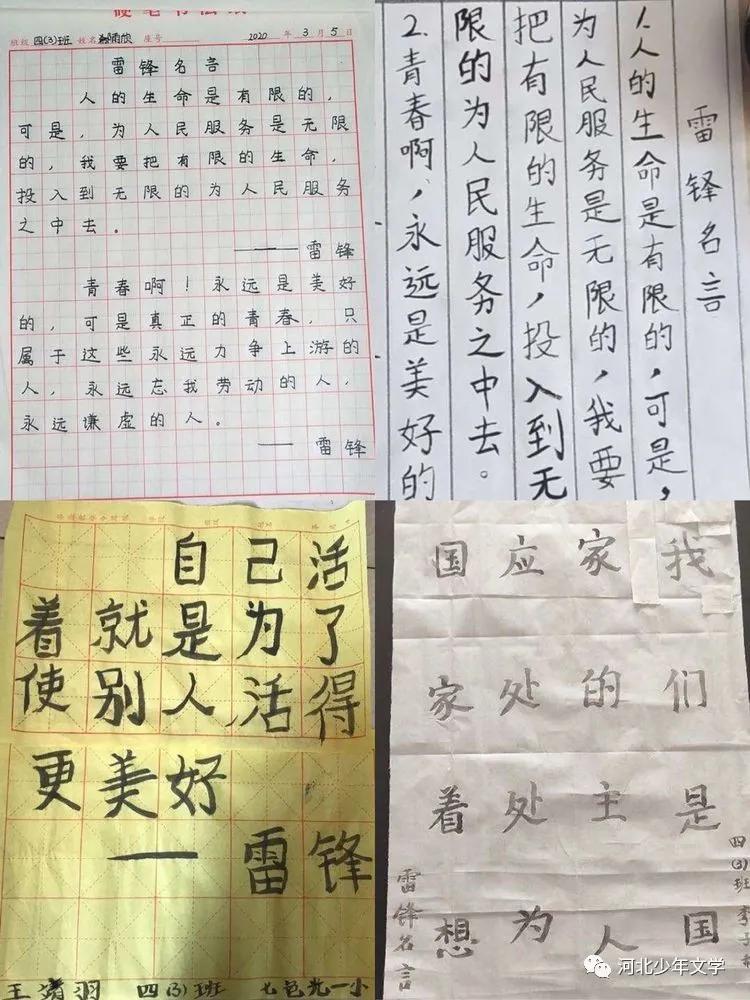 硬笔书法
班级 四(3)班 姓名 座号 2020 年 3 月 5 日
雷锋名言
人的生命是有限的，
可是，为人民服务是无限
的，我要把有限的生命，
投入到无限的为人民服务
之中去。
——雷锋
青春啊！永远是美好
的，可是真正的青春，只
属于这些永远力争上游的
人，永远忘我劳动的人，
永远谦虚的人。
——雷锋
雷锋名言
1.人的生命是有限的，可是，
为人民服务是无限的，我要
把有限的生命，投入到无
限的为人民服务之中去。
2.青春啊，永远是美好的
自己活
着就是为了
使别人活得
更美好
——雷锋
王 羽 四(3)班 七色光一小
我们是国
家的主人
应处处为
国家着想
雷锋名言
四(3)班 李子
河北少年文学